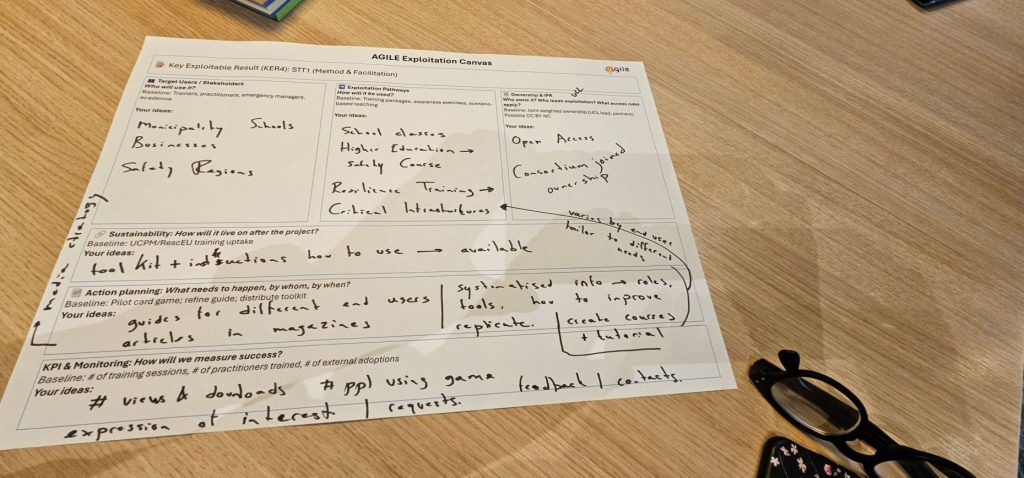 AGILE Exploitation Canvas
agile
Key Exploitable Result (KER4): STT1 (Method & Facilitation)
Target Users / Stakeholders
Who will use it?
Baseline: Trainers, practitioners, emergency managers,
academia
Your ideas:
Municipality Schools
Businesses
Safety Regions
Exploitation Pathways
How will it be used?
Baseline: Training packages, awareness exercises, scenario-
based teaching
Your ideas:
School classes
Higher Education →
Safety Course
Resilience Training →
Critical Infrastructures
Ownership & IPR
Who owns it? Who leads exploitation? What access rules
apply?
Baseline: Joint weighted ownership (UCL lead, partners).
Possible CC BY-NC
Your ideas:
Open Access
Consortium joined
ownership
varies by end user
tailor to different
needs
media strategy
Sustainability: How will it live on after the project?
Baseline: UCPM/RescEU training uptake
Your ideas:
tool kit + instructions how to use → available
Action planning: What needs to happen, by whom, by when?
Baseline: Pilot card game; refine guide; distribute toolkit
Your ideas:
guides for different end users
articles in magazines
systematised info → roles,
tools, how to improve
replicate.
create courses
+ tutorial
KPI & Monitoring: How will we measure success?
Baseline: # of training sessions, # of practitioners trained, # of external adoptions
Your ideas:
# views & downloads # ppl using game feedback | contacts.
expression of interest | requests.